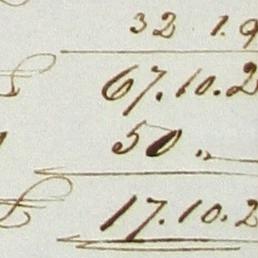 32 1.9
£ 67.10.2
50 "
£ 17.10.2